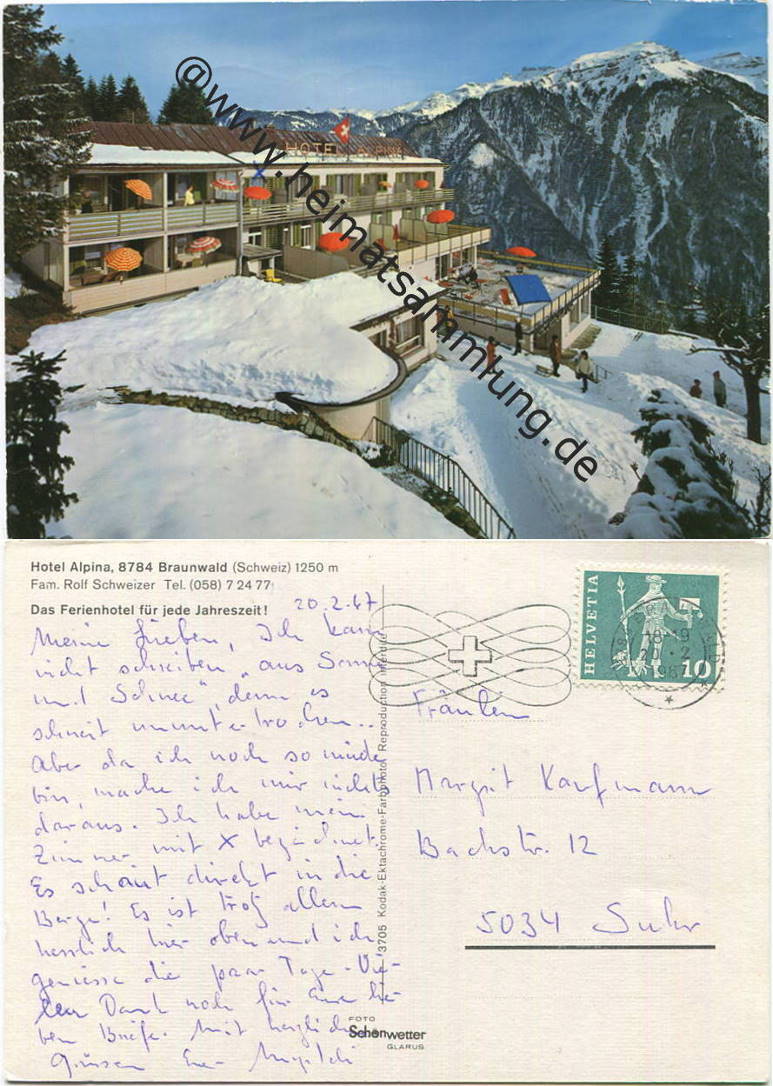 @www.heimatsammlung.de
HOTEL ALPINA
Hotel Alpina, 8784 Braunwald (Schweiz) 1250 m
Fam. Rolf Schweizer Tel. (058) 7 24 77
Das Ferienhotel für jede Jahreszeit!
20.2.67
Meine Lieben, Ich kann
nicht schreiben "aus Sonne
und Schnee", denn es
schneit ununterbrochen..
Aber da ich noch so müde
bin, mache ich mir nichts
daraus. Ich habe mein
Zimmer mit X bezeichnet.
Es schaut direkt in die
Berge! Es ist trotz allem
herrlich hier oben und ich
geniesse die paar Tage. Vie-
len Dank noch für Eure lie-
ben Briefe. Mit herzlichen
Grüssen Eure
3705 Kodak-Ektachrome-Farbphoto Reproduction interdite
FOTO
Schönwetter
GLARUS
HELVETIA
10
Fräulein
Margrit Kaufmann
Bachstr. 12
5034 Suhr